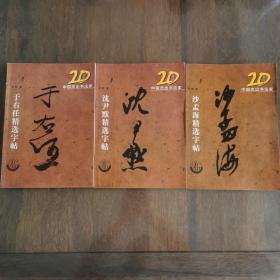 20
中国杰出书法家
于右任
于右任精选字帖
20
中国杰出书法家
沈尹默
沈尹默精选字帖
20
中国杰出书法家
沙孟海
沙孟海精选字帖